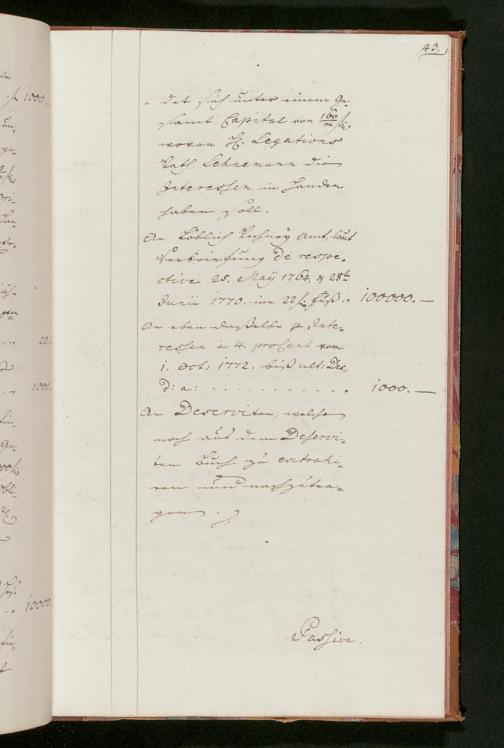 43.
- det sich unter einem Ge-
samt Capital von 160/m f.
wovon H. Legations
Rath Lehnemann die
Interessen in Handen
haben soll.
An Löbliches Rechney Amt, laut
Verbriefung de respe-
ctive 25. Maÿ 1764. & 28t
Junii 1770. im 22 f. Fuß . 100000. —
An eben dasselbe p. Inte-
ressen à 4. procent vom
1. Oct: 1772. biß ult: Dec.
d: a: . . . . . . . . . . . 1000. —
An Deserviten, welche
noch aus dem Deservi-
ten Buch zu extrahi-
ren und nachzutra-
gen.
Passiva.